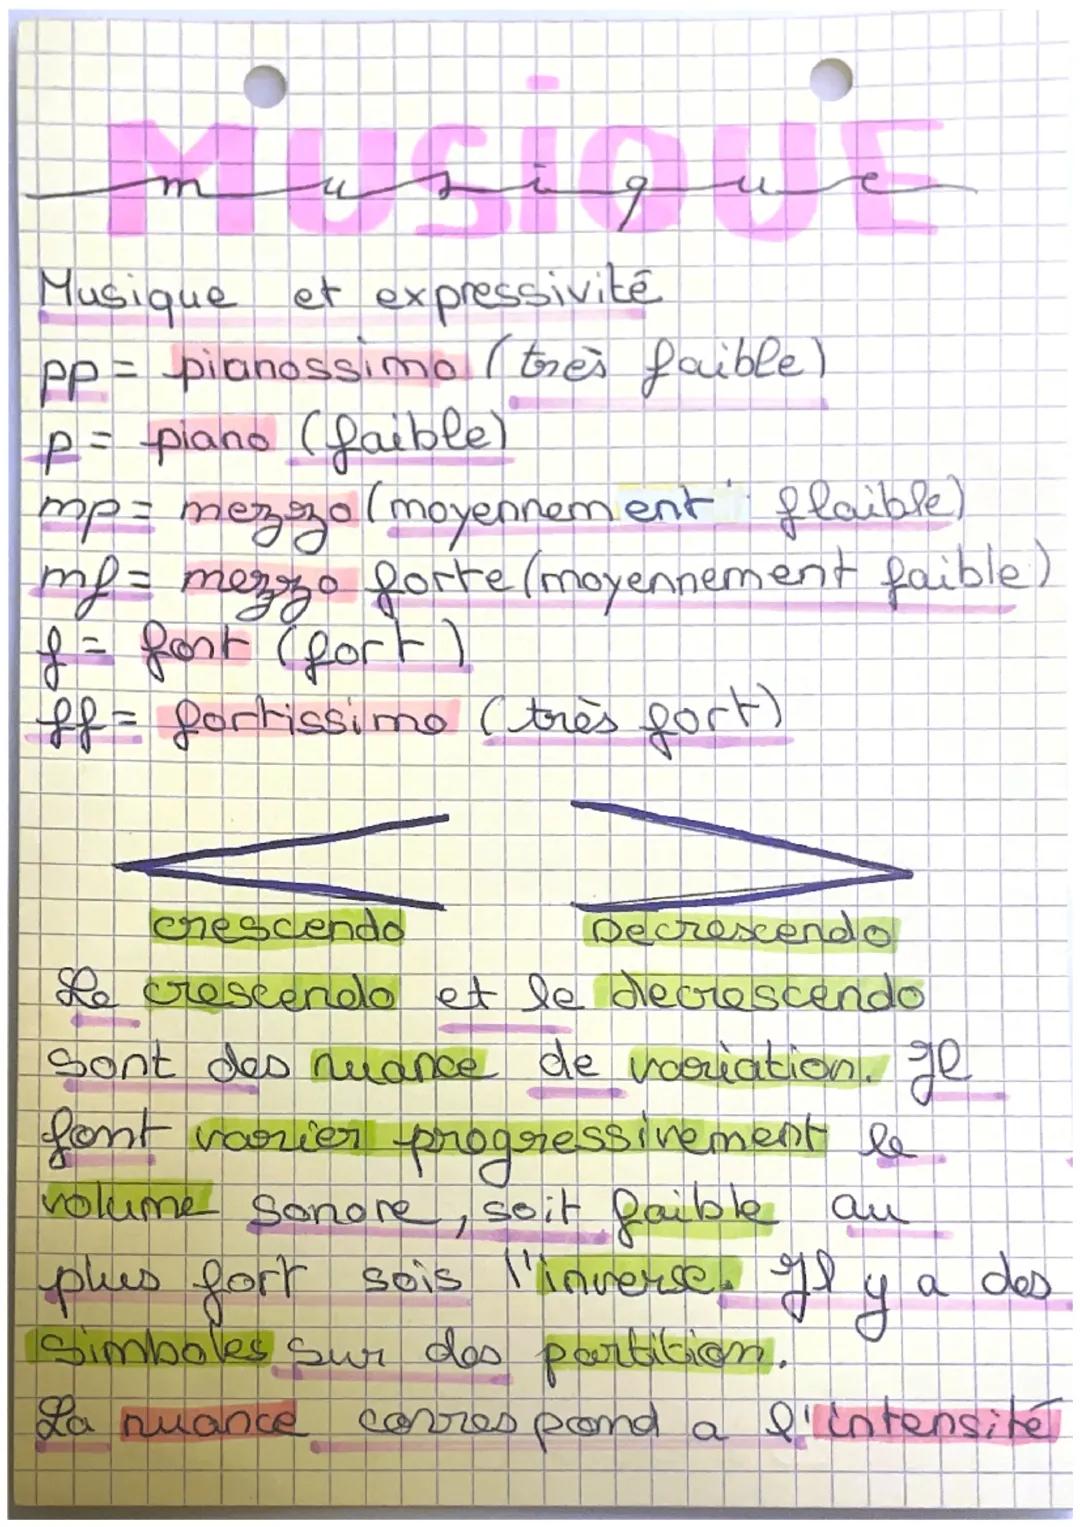 MUSIQUE
musique
Musique et expressivité
pp = pianossimo (très faible)
p = piano (faible)
mp = mezzo (moyennement flaible)
mf = mezzo forte (moyennement faible)
f = font (fort)
ff = fortissimo (très fort)
crescendo Decrescendo
Le crescendo et le decrescendo
sont des nuance de variation. Il
font varier progressivement le
volume sonore, soit faible au
plus fort sois l'inverse. Il y a des
simboles sur des partition.
La nuance correspond a l'intensité